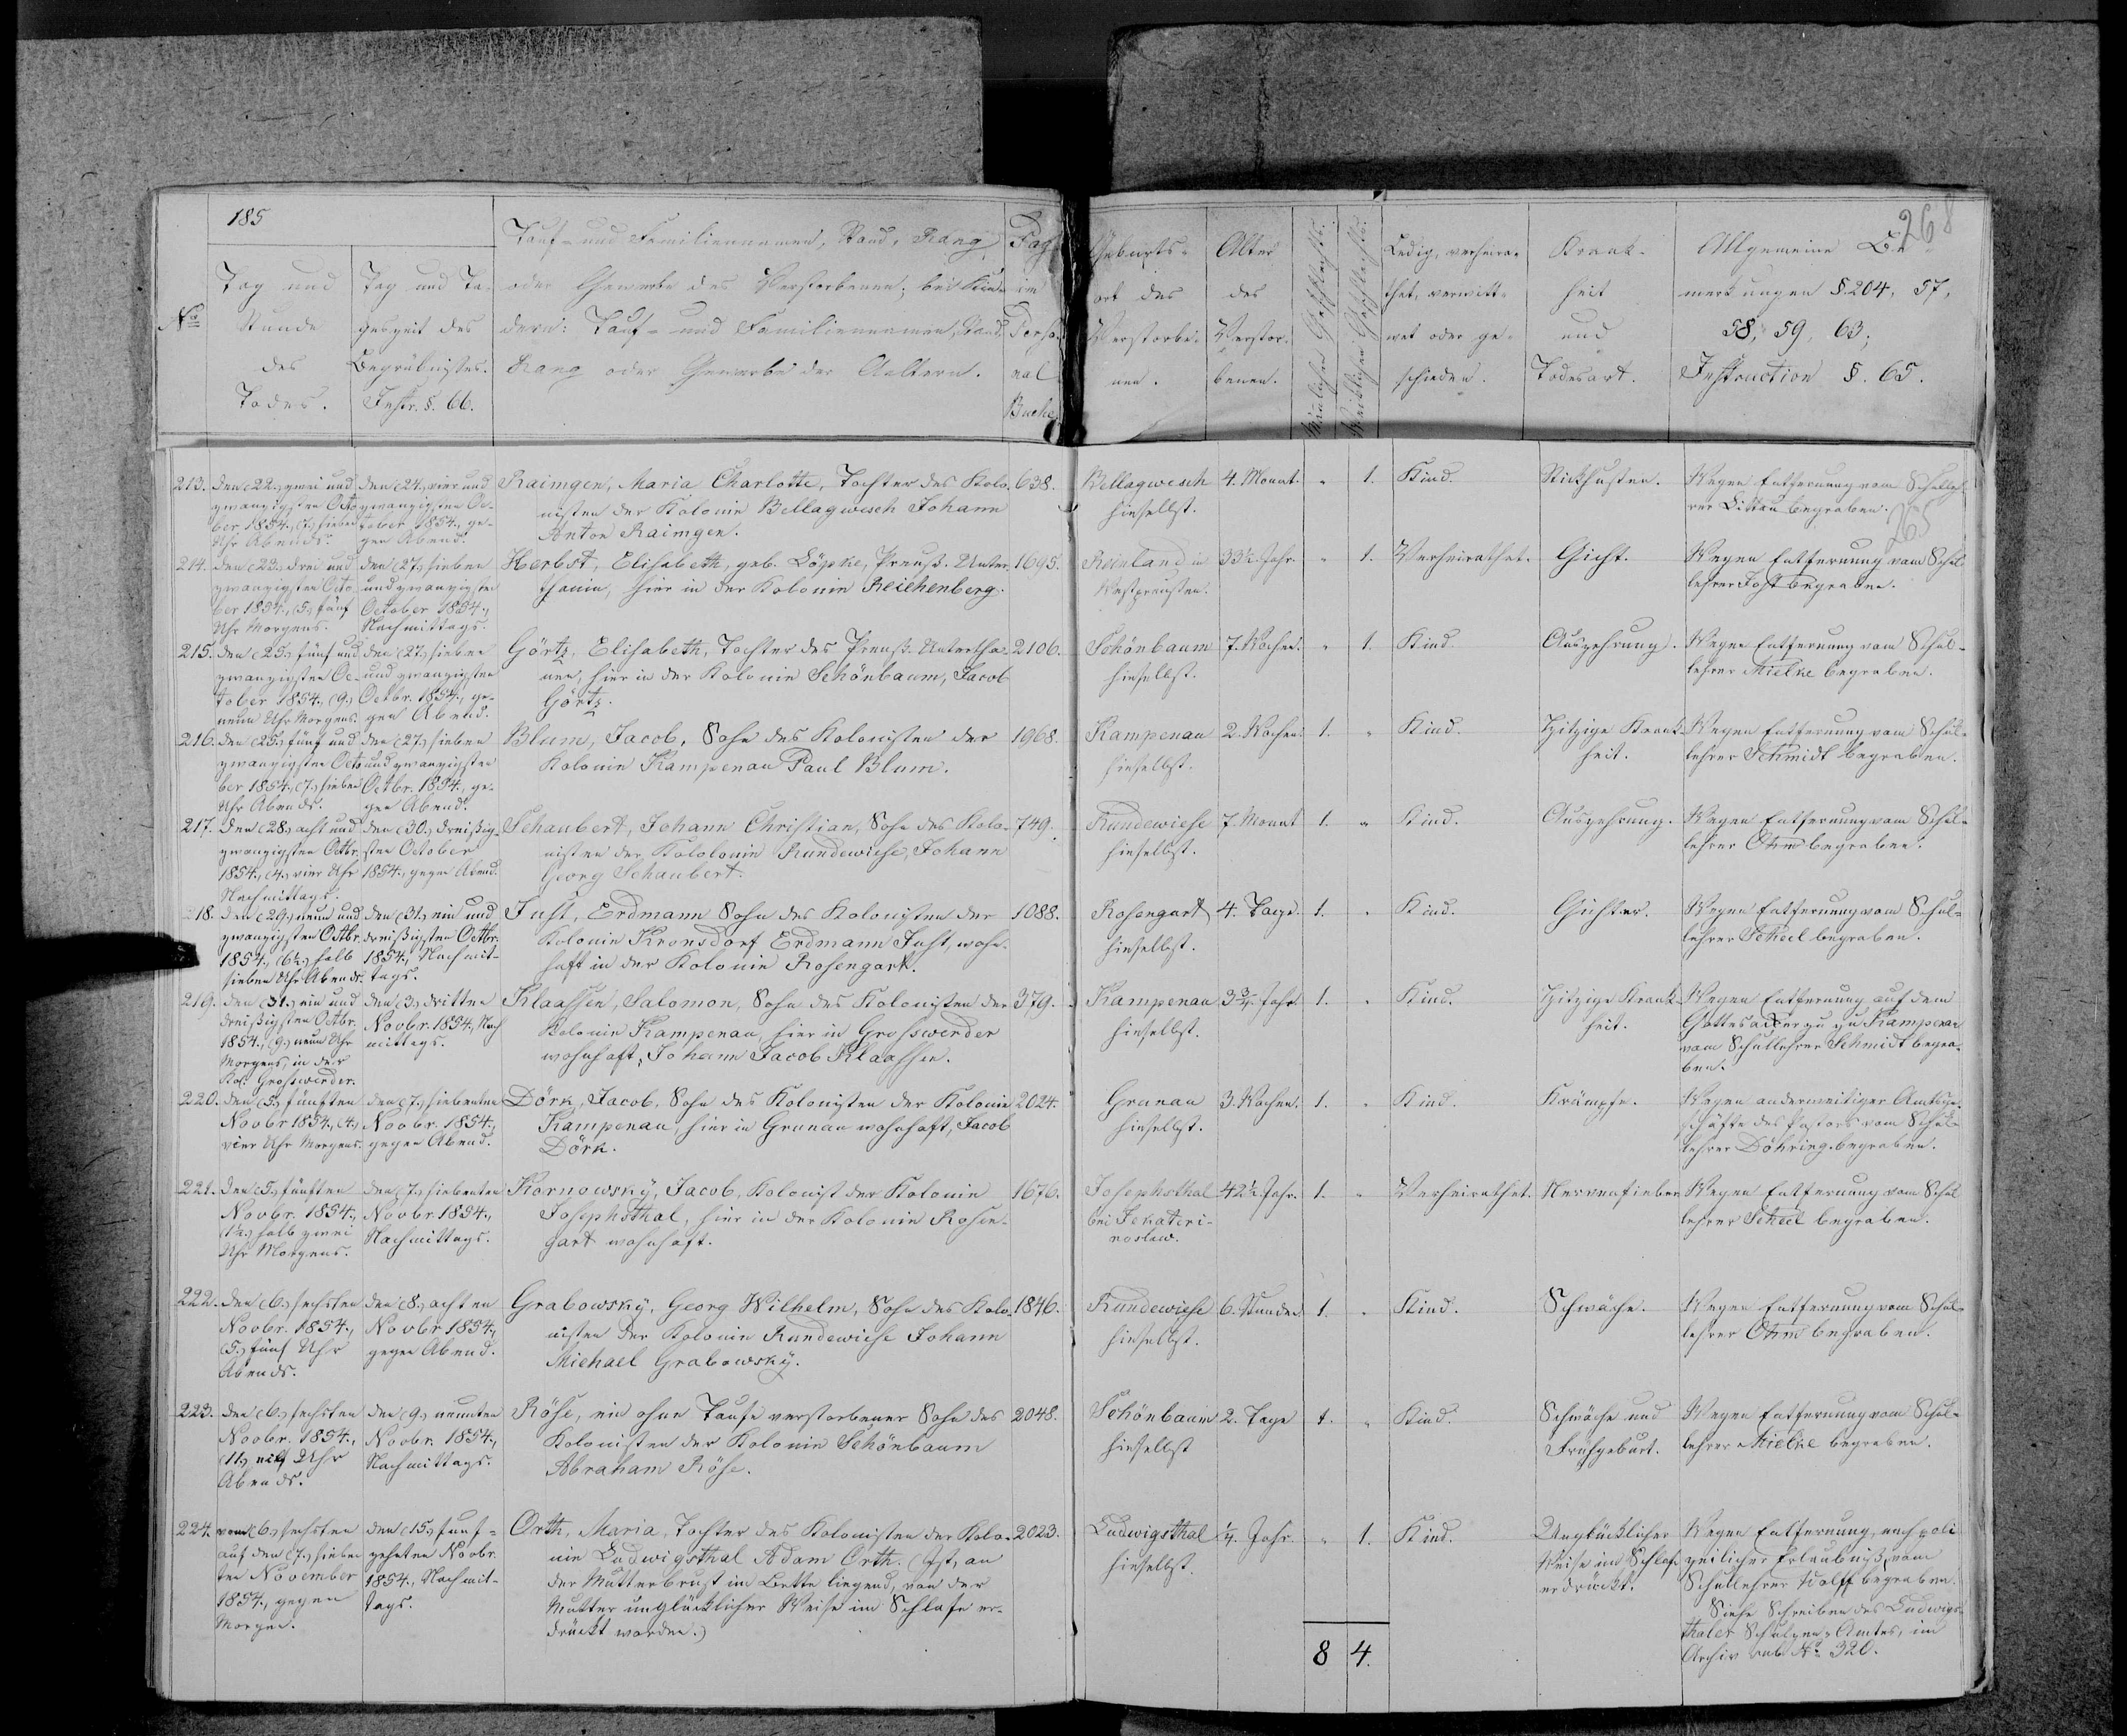 185
268
265
Tauf- und Familiennamen, Stand, Rang
oder Gewerbe des Verstorbenen; bei Kin-
dern: Tauf- und Familiennamen, Stand,
Rang oder Gewerbe der Aeltern.
Pag
im
Perso-
nal
Buche
No
Tag und
Stunde
des
Todes.
Tag und Ta-
geszeit des
Begräbnisses.
Instr. §. 66.
Geburts-
ort des
Verstorbe-
nen.
Alter
des
Verstor-
benen.
Männlichen Geschlechts.
Weiblichen Geschlechts.
Ledig, verheira-
thet, verwitt-
wet oder ge-
schieden.
Krank-
heit
und
Todesart.
Allgemeine Be-
merkungen §. 204, 57,
58, 59, 63;
Instruction §. 65.
213.
den (22.) zwei und
zwanzigsten Octo
ber 1854., (7.) sieben
Uhr Abends.
den (24.) vier und
zwanzigsten Oc-
tober 1854., ge-
gen Abend.
Raimgen, Maria Charlotte, Tochter des Kolo-
nisten der Kolonie Bellagwesch Johann
Anton Raimgen.
638.
Bellagwesch
hieselbst.
4. Monat.
" 1.
Kind.
Stickhusten.
Wegen Entfernung vom Schulleh-
rer Littau begraben.
214.
den (23.) drei und
zwanzigsten Octo
ber 1854., (5.) fünf
Uhr Morgens.
den (27.) sieben
und zwanzigsten
October 1854.,
Nachmittags.
Herbst, Elisabeth, geb. Löpke, Preuß. Unter-
thanin, hier in der Kolonie Reichenberg.
1695.
Reinland in
Westpreußen.
33½. Jahr.
" 1.
Verheirathet.
Gicht.
Wegen Entfernung vom Schul
lehrer Jost begraben.
215.
den (25.) fünf und
zwanzigsten Oc-
tober 1854., (9.)
neun Uhr Morgens.
den (27.) sieben
und zwanzigsten
Octbr. 1854., ge-
gen Abend.
Görtz, Elisabeth, Tochter des Preuß. Untertha-
nen, hier in der Kolonie Schönbaum, Jacob
Görtz.
2106.
Schönbaum
hieselbst.
7. Wochen.
" 1.
Kind
Auszehrung.
Wegen Entfernung vom Schul-
lehrer Mielke begraben.
216.
den (25.) fünf und
zwanzigsten Octo
ber 1854., (7.) sieben
Uhr Abends.
den (27.) sieben
und zwanzigsten
Octbr. 1854., ge-
gen Abend.
Blum, Jacob, Sohn des Kolonisten der
Kolonie Kampenau Paul Blum.
1968.
Kampenau
hieselbst.
2. Wochen.
1. "
Kind.
Hitzige Krank-
heit.
Wegen Entfernung vom Schul-
lehrer Schmidt begraben.
217.
den (28.) acht und
zwanzigsten Octbr.
1854., (4.) vier Uhr
Nachmittags.
den (30.) dreißig-
sten October
1854., gegen Abend.
Schaubert, Johann Christian, Sohn des Kolo-
nisten der Kololonie Rundewiese, Johann
Georg Schaubert.
749.
Rundewiese
hieselbst.
7. Monat
1. "
Kind.
Auszehrung.
Wegen Entfernung vom Schul-
lehrer Ohm begraben.
218.
den (29.) neun und
zwanzigsten Octbr.
1854., (6½.) halb
sieben Uhr Abends.
den (31.) ein und
dreißigsten Octbr.
1854., Nachmit-
tags.
Just, Erdmann Sohn des Kolonisten der
Kolonie Kronsdorf Erdmann Just, wohn-
haft in der Kolonie Rosengart.
1088.
Rosengart
hieselbst.
4. Tage.
1. "
Kind.
Gichter.
Wegen Entfernung vom Schul-
lehrer Scheel begraben.
219.
den (31.) ein und
dreißigsten Octbr.
1854., (9.) neun Uhr
Morgens, in der
Kol. Großwerder.
den (3.) dritten
Novbr. 1854., Nach
mittags.
Klaassen, Salomon, Sohn des Kolonisten der
Kolonie Kampenau, hier in Grosswerder
wohnhaft, Johann Jacob Klaassen.
379.
Kampenau
hieselbst.
3¾. Jahr
1. "
Kind.
Hitzige Krank-
heit.
Wegen Entfernung auf dem
Gottesacker zu zu Kampenau
vom Schullehrer Schmidt begra-
ben.
220.
den (5.) fünften
Novbr 1854., (4.)
vier Uhr Morgens.
den (7.) siebenten
Novbr. 1854.,
gegen Abend.
Dörk, Jacob, Sohn des Kolonisten der Kolonie
Kampenau, hier in Grunau wohnhaft, Jacob
Dörk.
2024.
Grunau
hieselbst.
3. Wochen.
1. "
Kind.
Krämpfe.
Wegen anderweitiger Amtsge-
schäfte des Pastors vom Schul-
lehrer Döhring begraben.
221.
den (5.) fünften
Novbr. 1854.,
(1½.) halb zwei
Uhr Morgens.
den (7.) siebenten
Novbr. 1854.,
Nachmittags.
Kornowsky, Jacob, Kolonist der Kolonie
Josephsthal, hier in der Kolonie Rosen-
gart wohnhaft.
1676.
Josephsthal
bei Jekateri-
noslaw.
42½. Jahr.
1. "
Verheirathet.
Nervenfieber
Wegen Entfernung vom Schul
lehrer Scheel begraben.
222.
den (6.) sechsten
Novbr. 1854.,
(5.) fünf Uhr
Abends.
den (8.) achten
Novbr 1854.,
gegen Abend.
Grabowsky, Georg Wilhelm, Sohn des Kolo-
nisten der Kolonie Rundewiese Johann
Michael Grabowsky.
1846.
Rundewiese
hieselbst.
6. Stunden
1. "
Kind.
Schwäche.
Wegen Entfernung vom Schul-
lehrer Ohm begraben.
223.
den (6.) sechsten
Novbr. 1854.,
(11.) eilf Uhr
Abends.
den (9.) neunten
Novbr. 1854.,
Nachmittags.
Röse, ein ohne Taufe verstorbener Sohn des
Kolonisten der Kolonie Schönbaum
Abraham Röse.
2048.
Schönbaum
hieselbst
2. Tage
1. "
Kind.
Schwäche und
Frühgeburt.
Wegen Entfernung vom Schul-
lehrer Mielke begraben.
224.
vom (6.) sechsten
auf den (7.) sieben
ten November
1854., gegen
Morgen.
den (15.) fünf-
zehnten Novbr.
1854., Nachmit-
tags.
Orth, Maria, Tochter des Kolonisten der Kolo-
nie Ludwigsthal Adam Orth. (Ist, an
der Mutterbrust im Bette liegend, von der
Mutter unglücklicher Weise im Schlafe er-
drückt worden.)
2023.
Ludwigsthal
hieselbst.
¼. Jahr.
" 1.
Kind.
Unglücklicher
Weise im Schlafe
erdrückt.
Wegen Entfernung, nach poli
zeilicher Erlaubniß, vom
Schullehrer Wolff begraben.
Siehe Schreiben des Ludwigs-
thaler Schulzen-Amtes, im
Archiv sub No 320.
8 4.